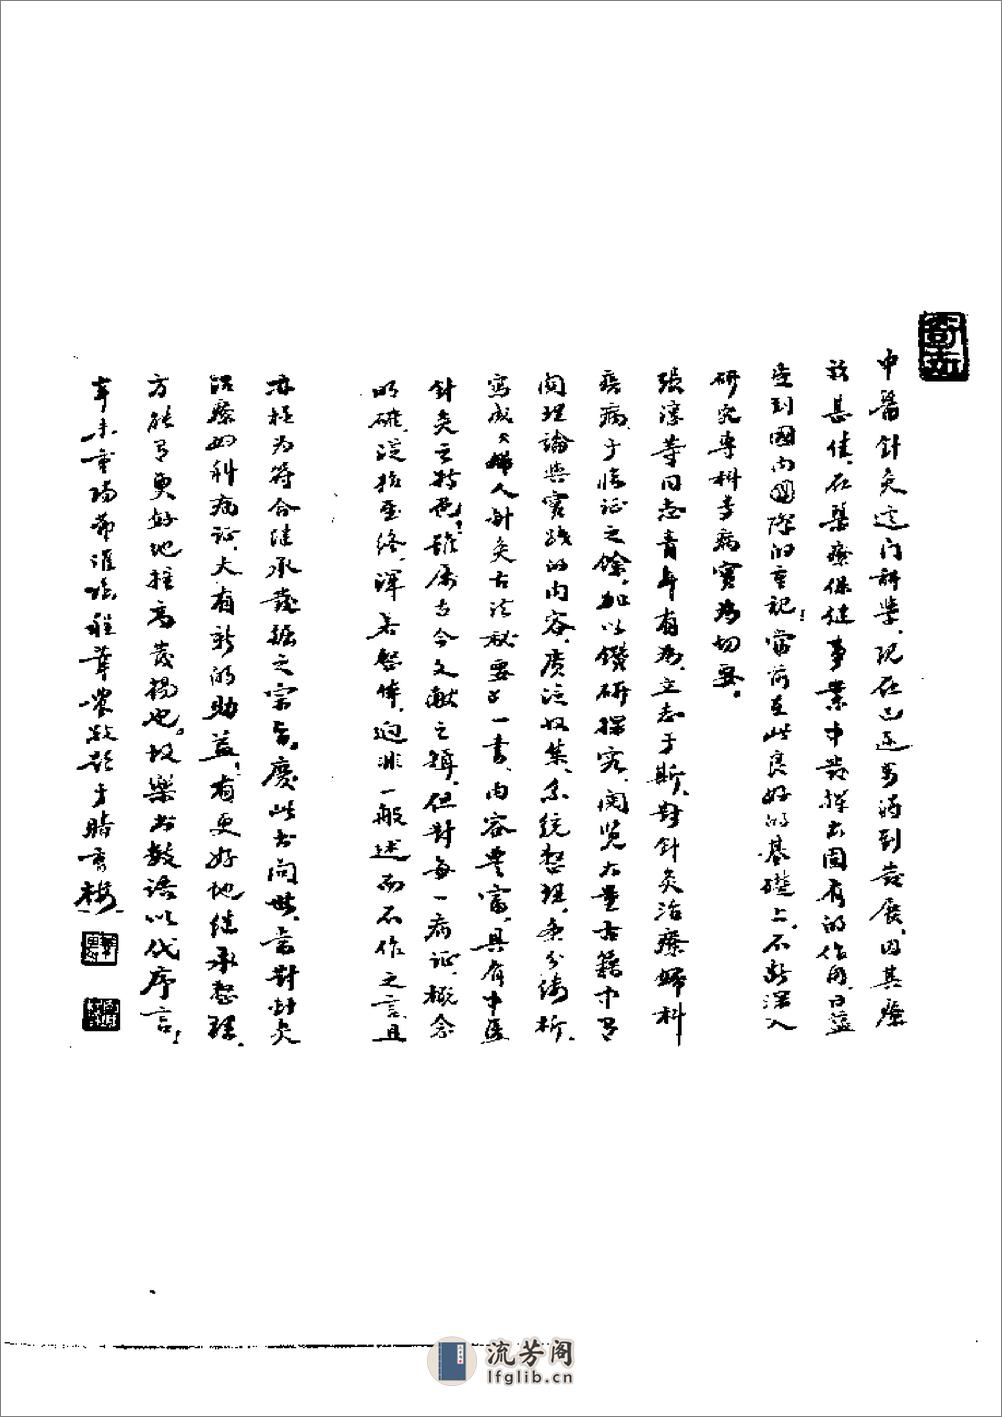 中醫針灸这门科学，现在已逐步得到发展，因其療
效甚佳，在醫療保健事業中发揮出固有的作用，日益
受到國内國際的重視，當前在此良好的基礎上，不断深入
研究專科专病實为切要。
張淳等同志青年有为，立志于斯，對针灸治療婦科
疾病，于临证之馀，加以鑽研探究，閱览大量古籍中有
関理論與實践的内容，廣泛收集，系統整理，条分缕析，
寫成《婦人针灸古法秘要》一書，内容豐富，具有中医
針灸之特色，雖属古今文献之辑，但對每一病证，概念
明確，從始至终，渾若整体，迥非一般述而不作之言，且
亦極为符合继承發掘之宗旨，慶此书问世，当對针灸
治療妇科病证，大有新的助益，有更好地继承整理，
方能有更好地提高发揚也，故樂书数语以代序言，
辛未重陽節 程莘農敬题于
流芳阁
lfglib.cn